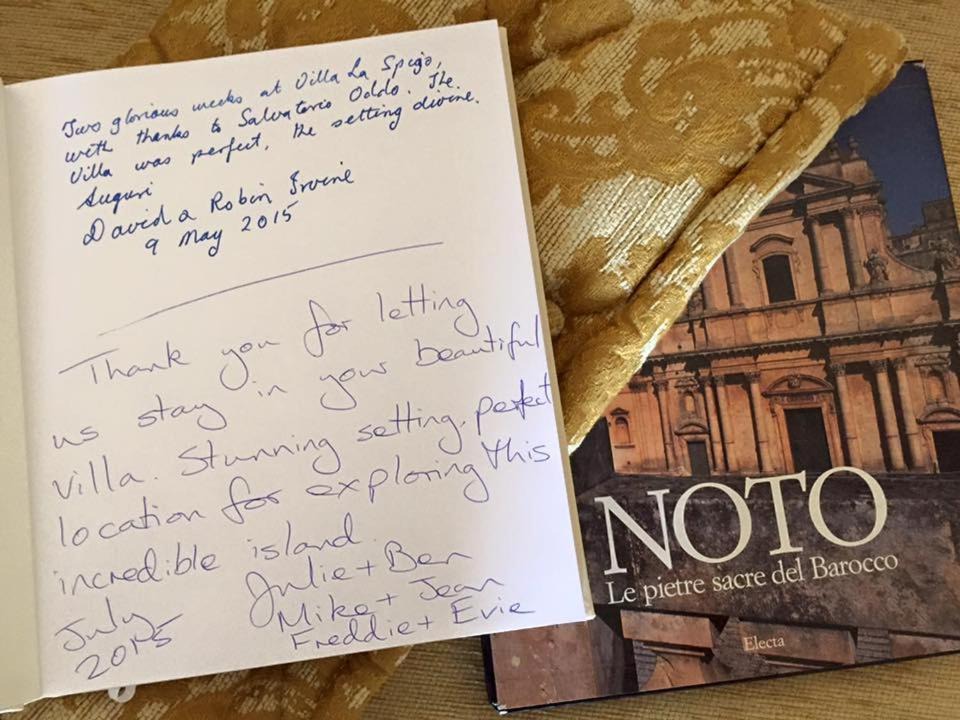 Two glorious weeks at Villa La Spiga,
with thanks to Salvatorio Oddo. The
Villa was perfect, the setting divine.
Auguri
David a Robin Irvine
9 May 2015
Thank you for letting
us stay in your beautiful
villa. Stunning setting, perfect
location for exploring this
incredible island.
July 2015
Julie + Ben
Mike + Jean
Freddie + Evie
NOTO
Le pietre sacre del Barocco
Electa